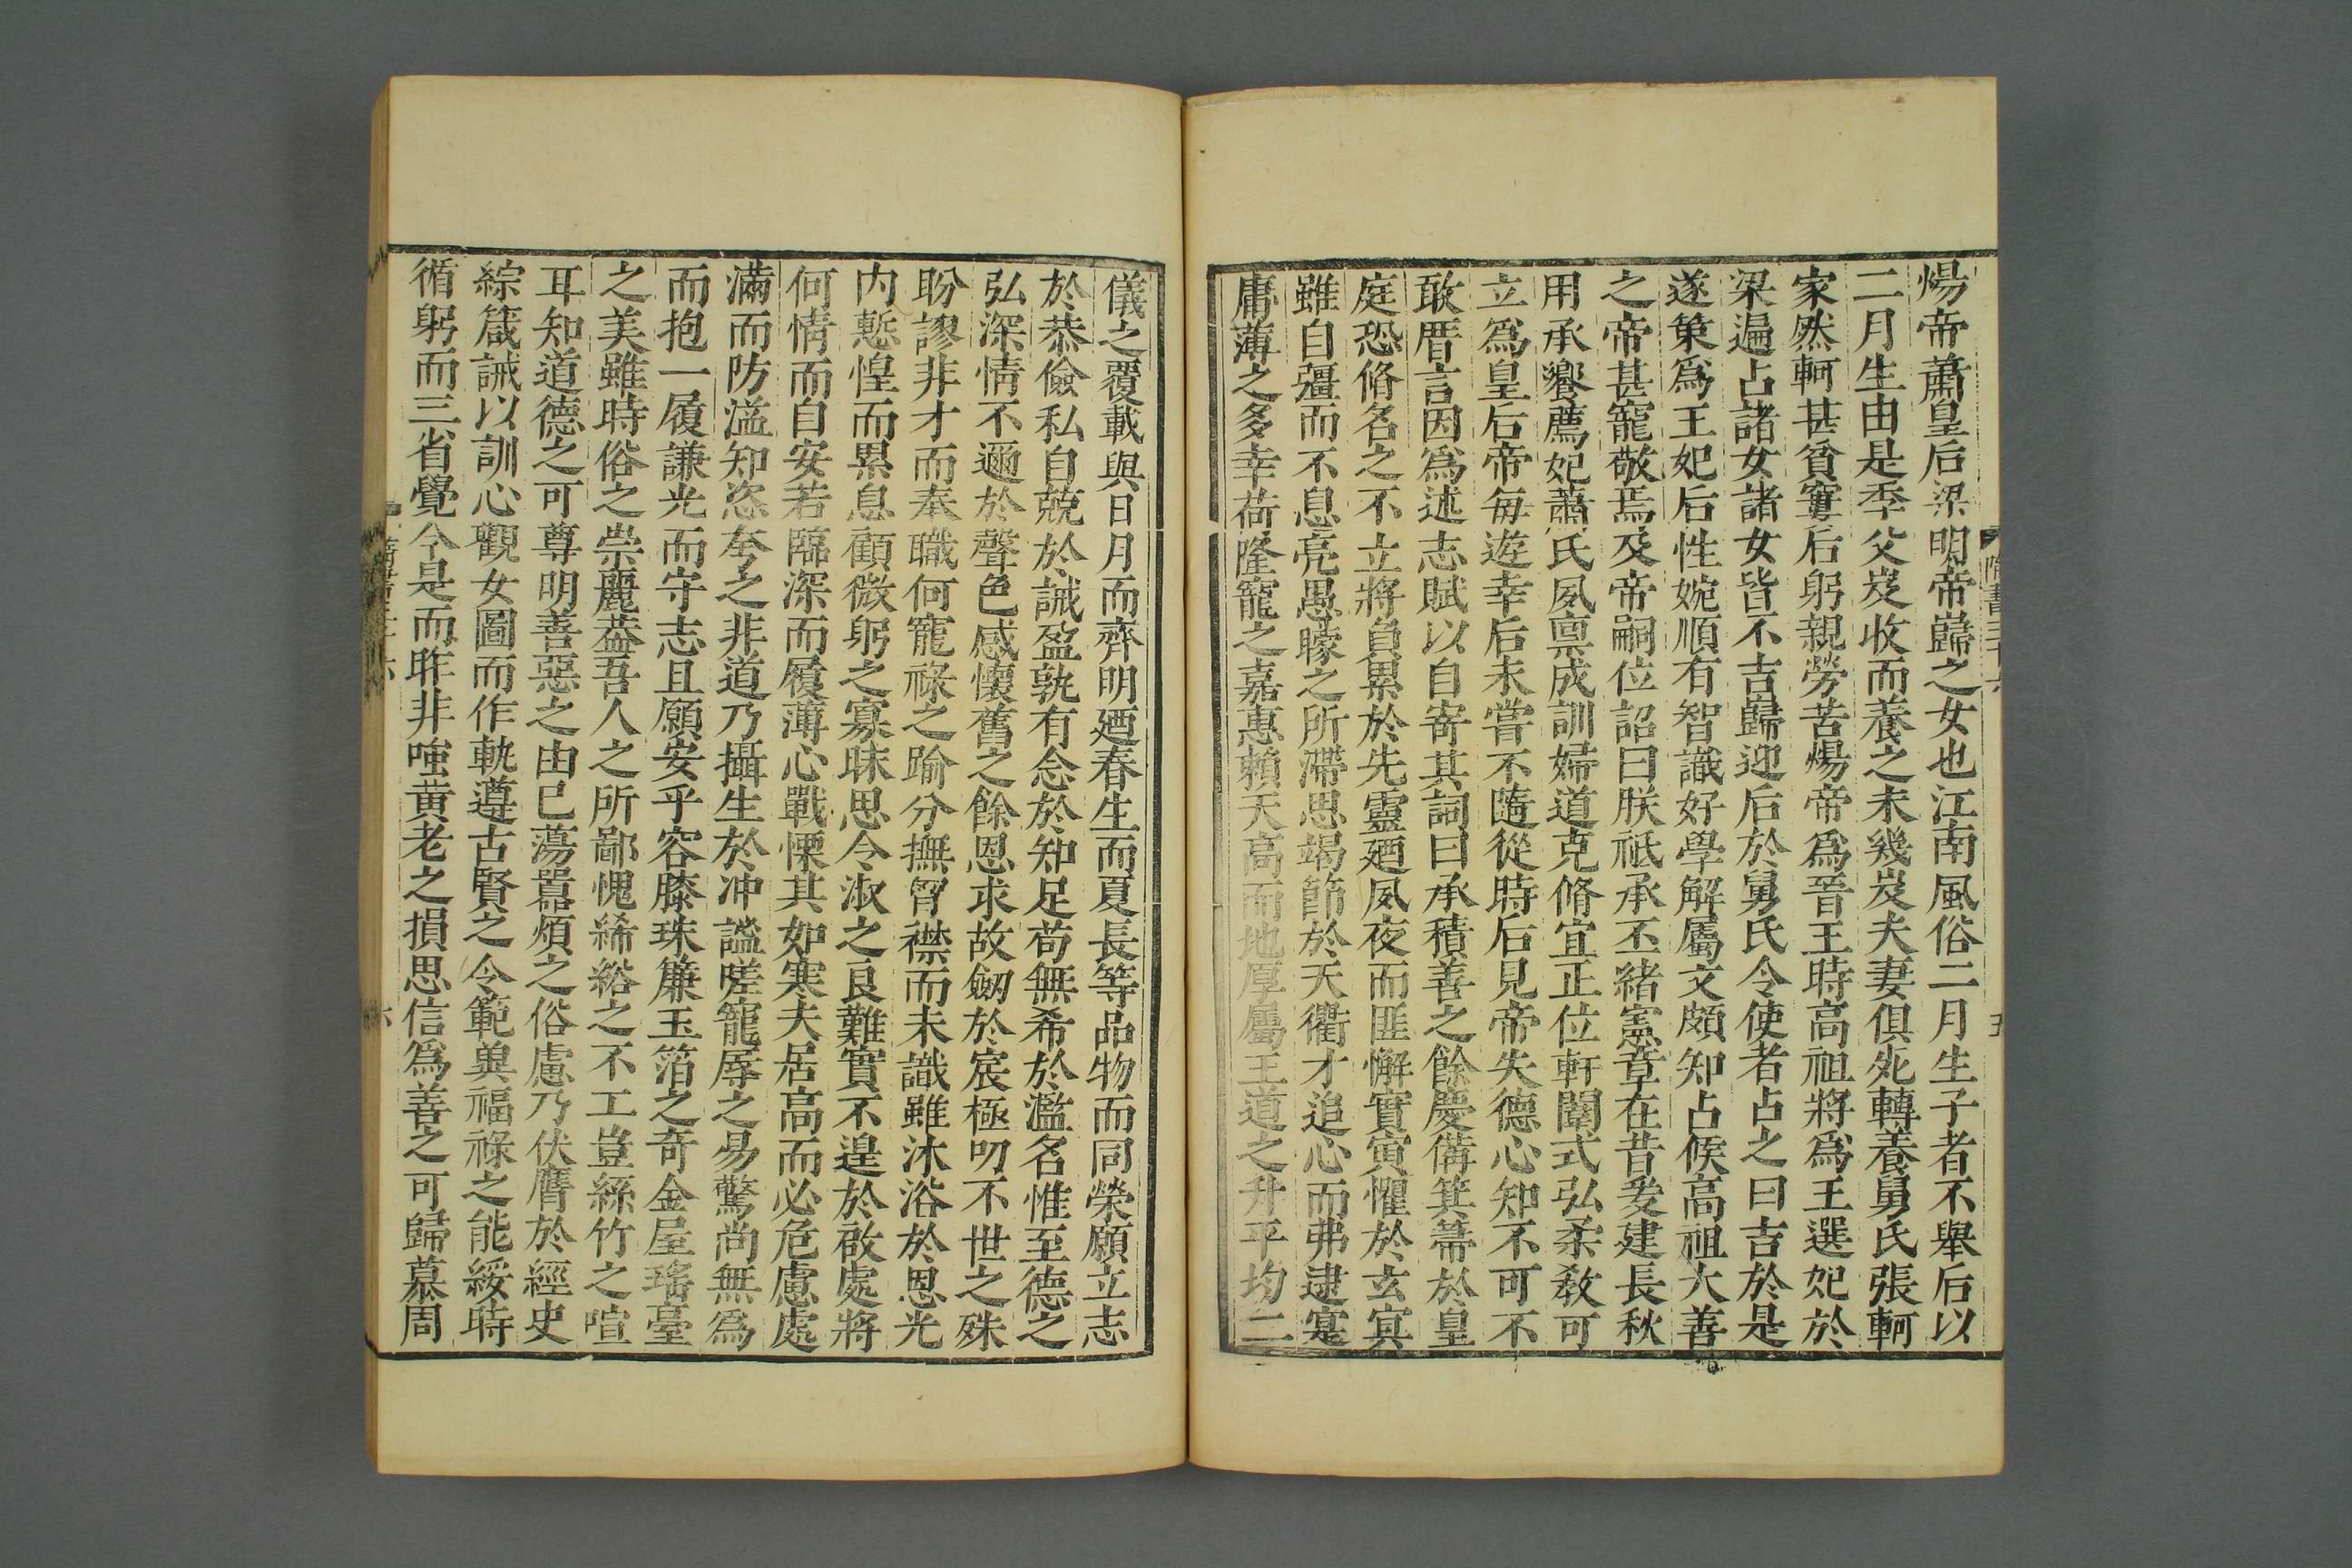 煬帝蕭皇后梁明帝巋之女也江南風俗二月生子者不舉后以
二月生由是季父岌收而養之未幾岌夫妻俱死轉養舅氏張軻
家然軻甚貧窶后躬親勞苦煬帝爲晉王時高祖將爲王選妃於
梁遍占諸女諸女皆不吉巋迎后於舅氏令使者占之曰吉於是
遂策爲王妃后性婉順有智識好學解屬文頗知占候高祖大善
之帝甚寵敬焉及帝嗣位詔曰朕祗承丕緒憲章在昔爰建長秋
用承饗薦妃蕭氏夙禀成訓婦道克脩宜正位軒闈式弘柔敎可
立爲皇后帝每遊幸后未嘗不隨從時后見帝失德心知不可不
敢厝言因爲述志賦以自寄其詞曰承積善之餘慶備箕箒於皇
庭恐脩名之不立將負累於先靈廼夙夜而匪懈實寅懼於玄寞
雖自彊而不息亮愚矇之所滯思竭節於天衢才追心而弗逮寔
庸薄之多幸荷隆寵之嘉惠賴天高而地厚屬王道之升平均二
儀之覆載與日月而齊明廼春生而夏長等品物而同榮願立志
於恭儉私自兢於誡盈孰有念於知足苟無希於濫名惟至德之
弘深情不邇於聲色感懷舊之餘恩求故劒於宸極叨不世之殊
盼謬非才而奉職何寵祿之踰分撫胷襟而未識雖沐浴於恩光
内慙惶而累息顧微躬之寡昧思令淑之良難實不遑於啟處將
何情而自安若臨深而履薄心戰慄其如寒夫居高而必危慮處
滿而防溢知恣夸之非道乃攝生於冲謐嗟寵辱之易驚尚無爲
而抱一履謙光而守志且願安乎容膝珠簾玉箔之奇金屋瑤臺
之美雖時俗之崇麗葢吾人之所鄙愧絺綌之不工豈絲竹之喧
耳知道德之可尊明善惡之由已蕩囂煩之俗慮乃伏膺於經史
綜箴誡以訓心觀女圖而作軌遵古賢之令範兾福祿之能綏時
循躬而三省覺今是而昨非嗤黄老之損思信爲善之可歸慕周